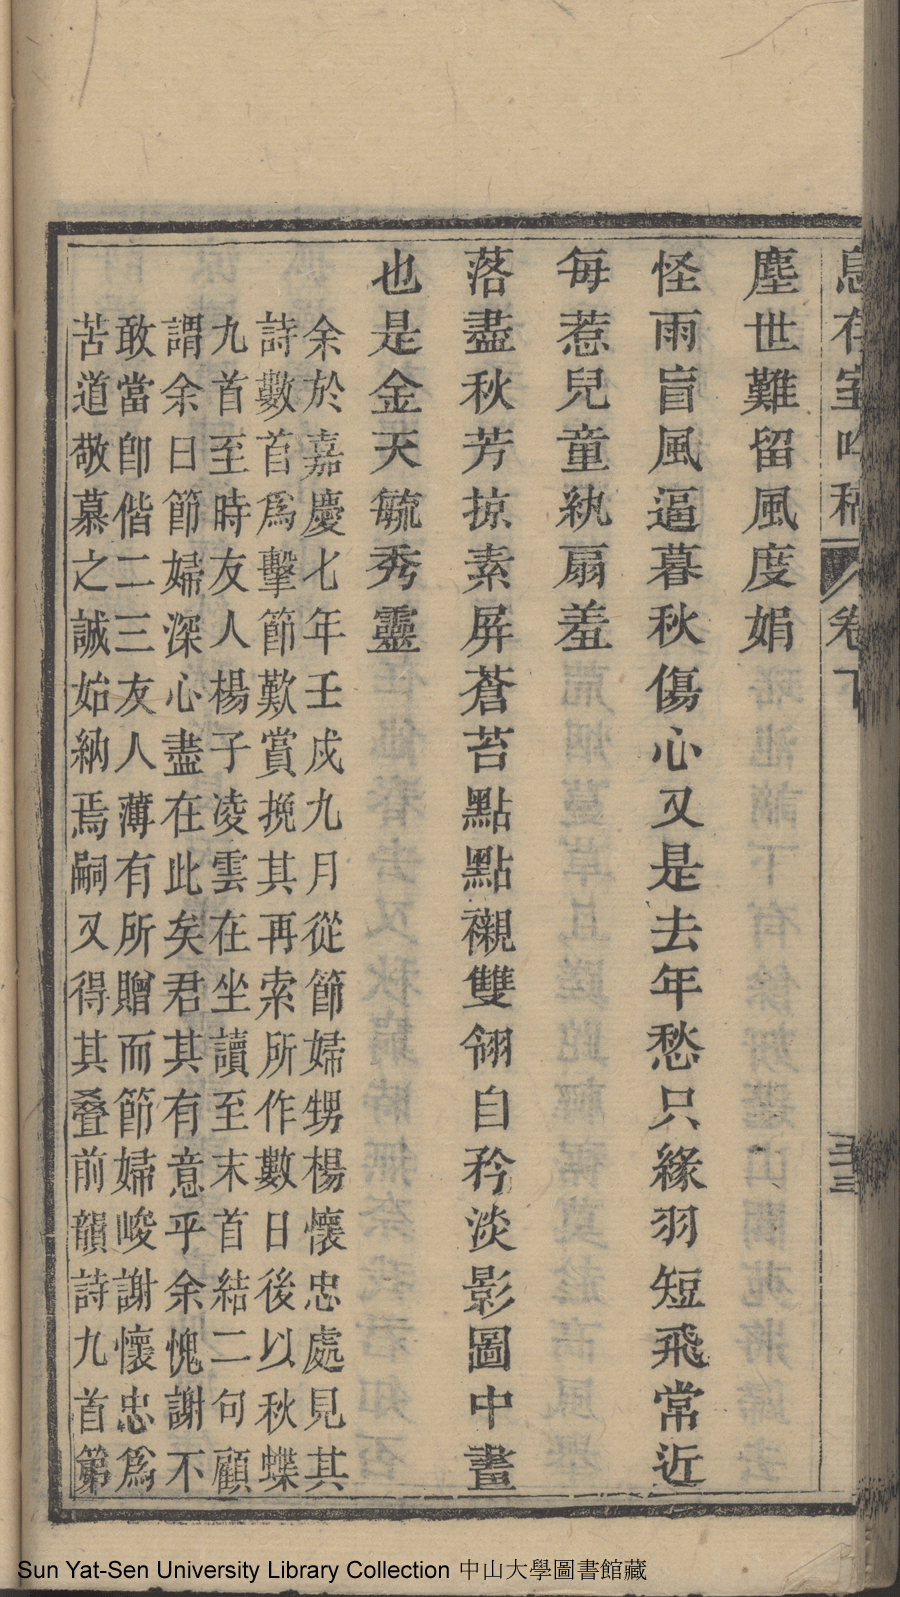 息存室吟稿 卷下 三三
塵世難留風度娟
怪雨盲風逼暮秋傷心又是去年愁只緣羽短飛常近
每惹兒童紈扇羞
落盡秋芳掠素屏蒼苔點點襯雙翎自矜淡影圖中畫
也是金天毓秀靈
余於嘉慶七年壬戍九月從節婦甥楊懷忠處見其
詩數首爲擊節歎賞挽其再索所作數日後以秋蝶
九首至時友人楊子凌雲在坐讀至末首結二句顧
謂余曰節婦深心盡在此矣君其有意乎余愧謝不
敢當卽偕二三友人薄有所贈而節婦峻謝懷忠爲
苦道敬慕之誠始納焉嗣又得其叠前韻詩九首第
Sun Yat-Sen University Library Collection 中山大學圖書館藏